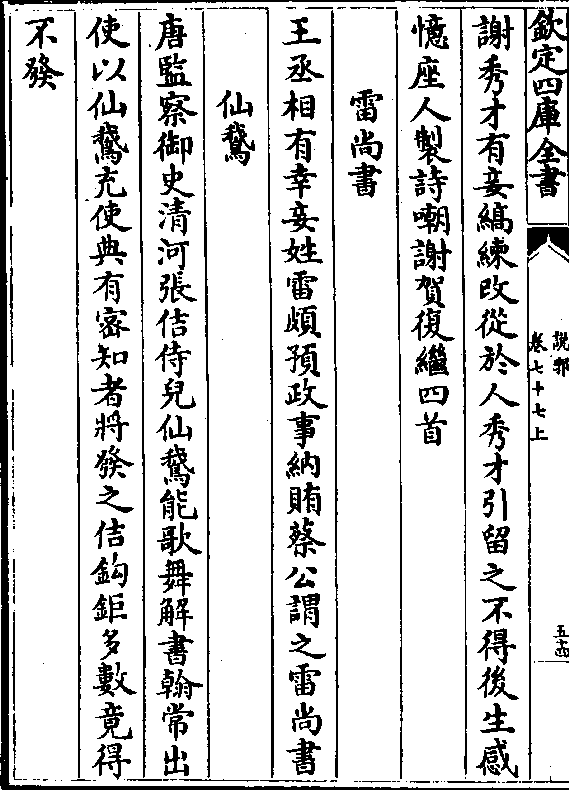 欽定四庫全書
說郛
卷七十七上
五十四
謝秀才有妾縞練改從於人秀才引留之不得後生感
憶座人製詩嘲謝賀復繼四首
雷尚書
王丞相有幸妾姓雷頗預政事納賄蔡公謂之雷尚書
仙鵞
唐監察御史清河張佶侍兒仙鵞能歌舞解書翰常出
使以仙鵞充使典有密知者將發之佶鈎鉅多數竟得
不發